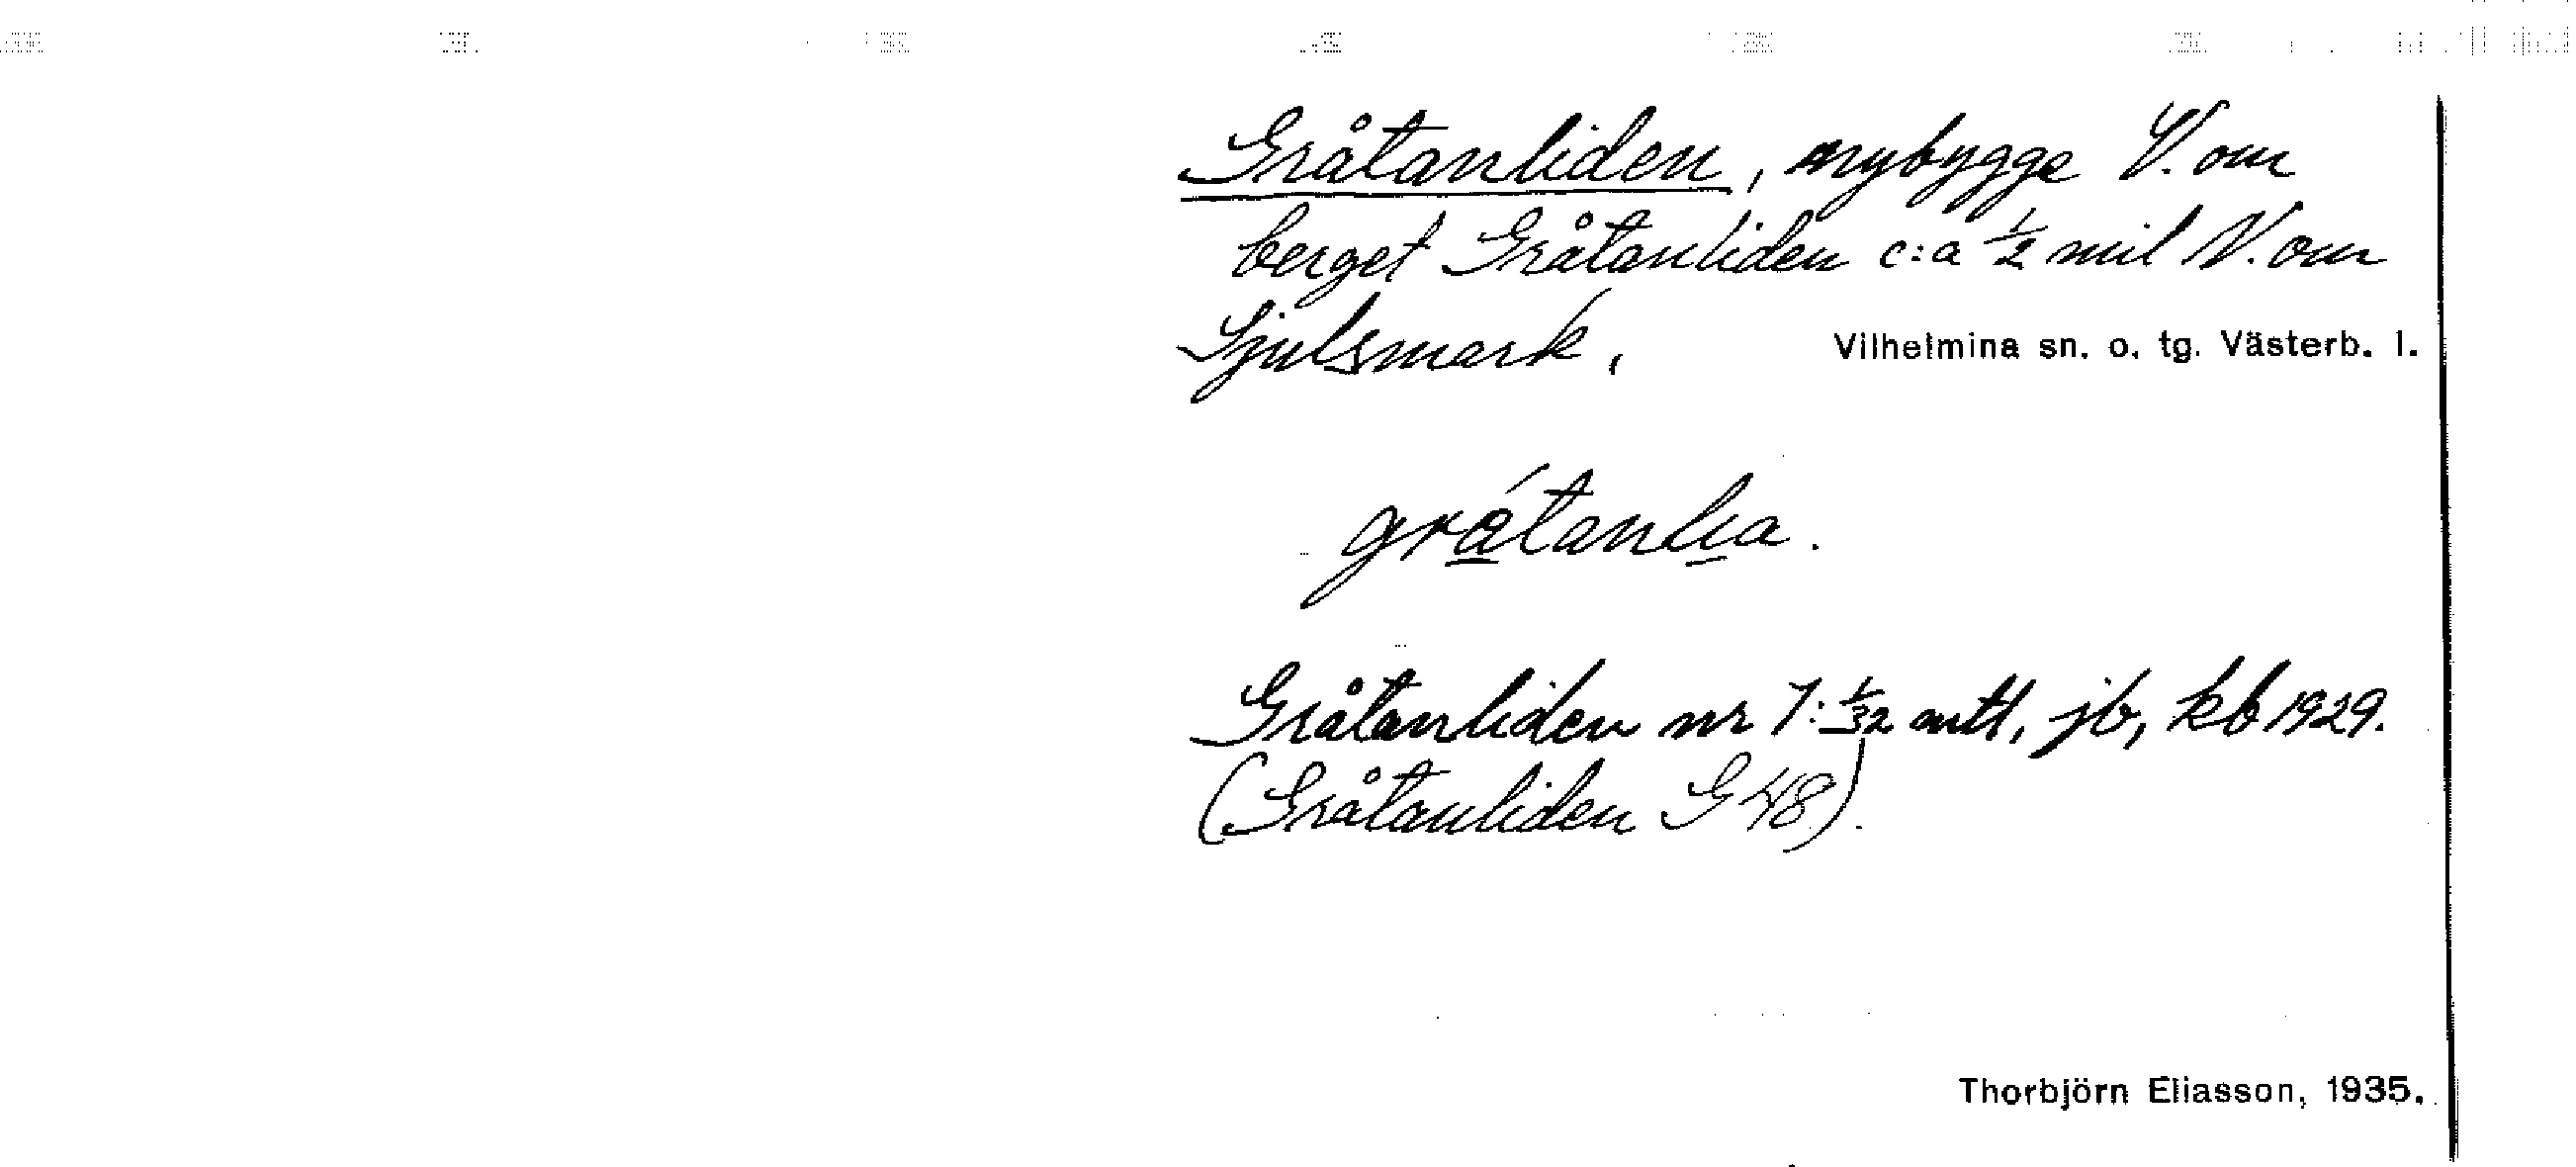 Gråtanliden, nybygge V. om
berget Gråtanliden c:a ½ mil N. om
Sjulsmark,
Vilhelmina sn. o. tg. Västerb. l.
grátanli̲a.
Gråtanliden nr 1: 1/32 mtl, jb, kb 1929.
(Gråtanliden G 48).
Thorbjörn Eliasson, 1935.